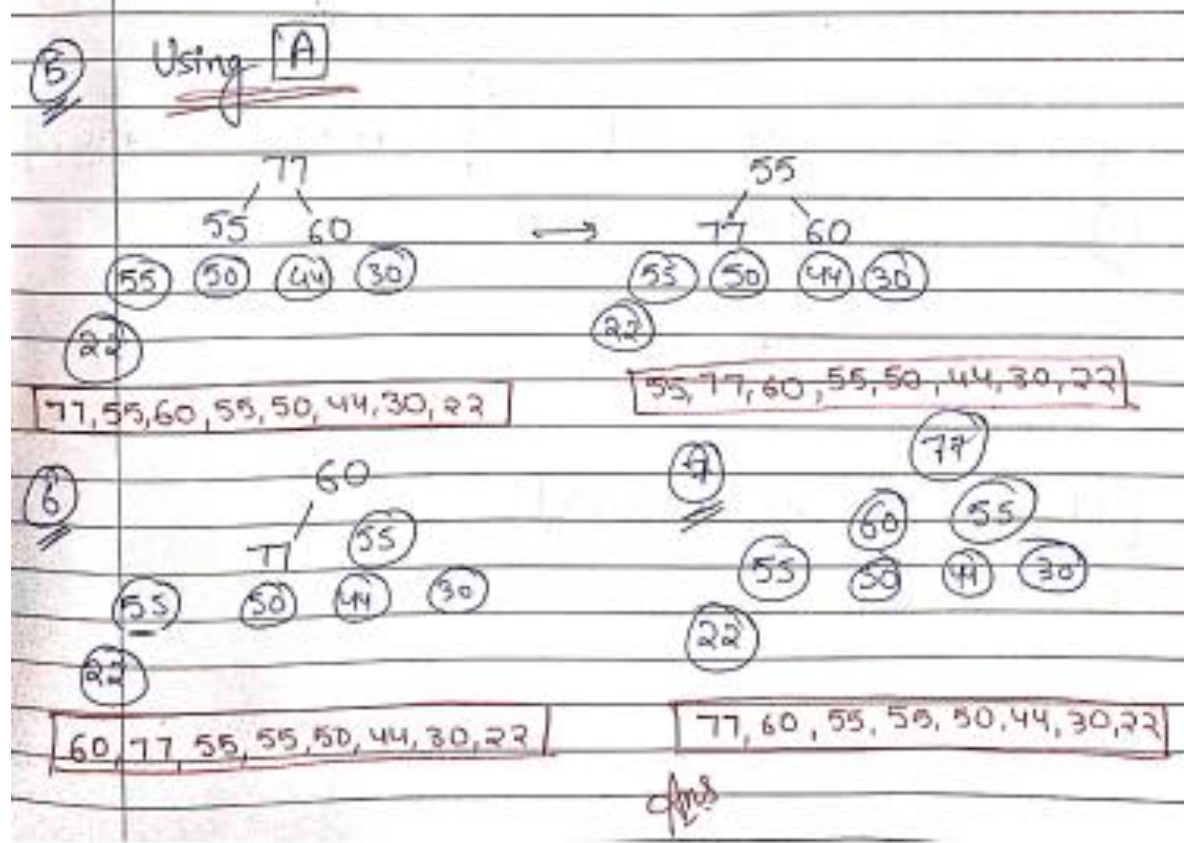 5 Using A
77
55 60
55 50 44 30
22
77, 55, 60, 55, 50, 44, 30, 22
55
77 60
55 50 44 30
22
55, 77, 60, 55, 50, 44, 30, 22
6
60
77 55
55 50 44 30
22
60, 77, 55, 55, 50, 44, 30, 22
7
77
60 55
55 50 44 30
22
77, 60, 55, 55, 50, 44, 30, 22
Ans